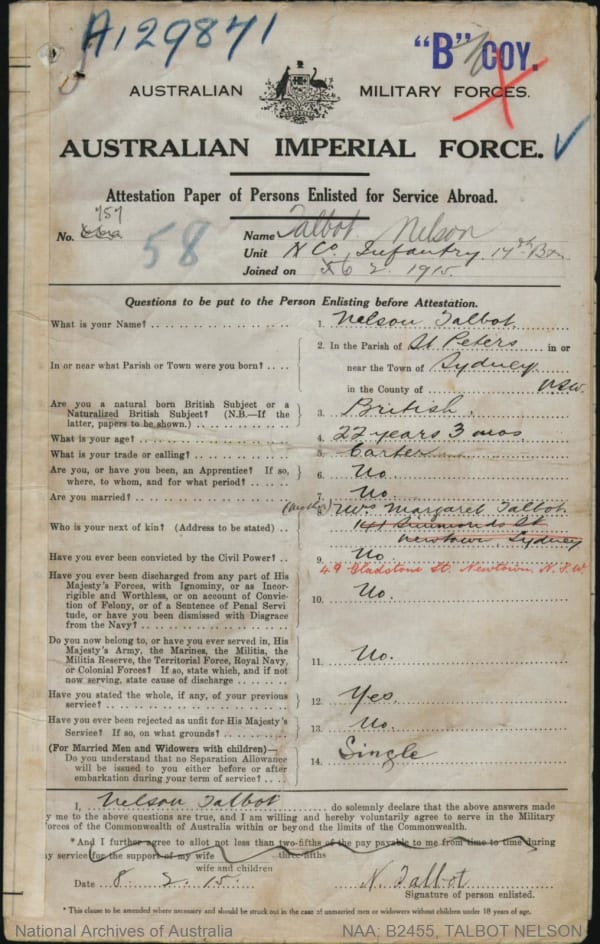 A129871
"B" COY.
AUSTRALIAN MILITARY FORCES.
AUSTRALIAN IMPERIAL FORCE.
Attestation Paper of Persons Enlisted for Service Abroad.
757
No. 58
Name Talbot Nelson
Unit Co, Infantry, 17th Btn
Joined on 6 2 1915.
Questions to be put to the Person Enlisting before Attestation.
What is your Name? 1. Nelson Talbot.
In or near what Parish or Town were you born? 2. In the Parish of St Peters in or
near the Town of Sydney
in the County of N.S.W.
Are you a natural born British Subject or a
Naturalized British Subject? (N.B.—If the
latter, papers to be shown.) 3. British.
What is your age? 4. 22 years 3 mos
What is your trade or calling? 5. Carter
Are you, or have you been, an Apprentice? If so,
where, to whom, and for what period? 6. No.
Are you married? 7. No.
Who is your next of kin? (Address to be stated) (Mother) 8. Mrs Margaret Talbot.
141 Simmonds St
Newtown, Sydney
Have you ever been convicted by the Civil Power? 9. No
49 Gladstone St. Newtown N.S.W.
Have you ever been discharged from any part of His
Majesty's Forces, with Ignominy, or as Incor-
rigible and Worthless, or on account of Convic-
tion of Felony, or of a Sentence of Penal Servi-
tude, or have you been dismissed with Disgrace
from the Navy? 10. No.
Do you now belong to, or have you ever served in, His
Majesty's Army, the Marines, the Militia, the
Militia Reserve, the Territorial Force, Royal Navy,
or Colonial Forces? If so, state which, and if not
now serving, state cause of discharge 11. No.
Have you stated the whole, if any, of your previous
service? 12. Yes.
Have you ever been rejected as unfit for His Majesty's
Service? If so, on what grounds? 13. No.
(For Married Men and Widowers with children)—
Do you understand that no Separation Allowance
will be issued to you either before or after
embarkation during your term of service? 14. Single
I, Nelson Talbot do solemnly declare that the above answers made
by me to the above questions are true, and I am willing and hereby voluntarily agree to serve in the Military
Forces of the Commonwealth of Australia within or beyond the limits of the Commonwealth.
*And I further agree to allot not less than two-fifths of the pay payable to me from time to time during
three-fifths
my service for the support of my wife
wife and children
Date 8. 2. 15. N. Talbot
Signature of person enlisted.
* This clause to be amended where necessary and should be struck out in the case of unmarried men or widowers without children under 18 years of age.
National Archives of Australia NAA: B2455, TALBOT NELSON